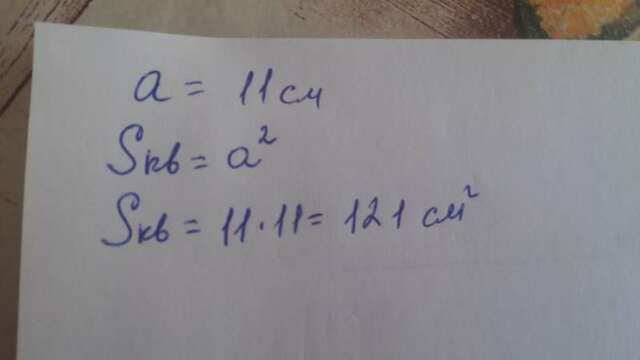 a = 11 см
Sкв = a²
Sкв = 11 · 11 = 121 см²